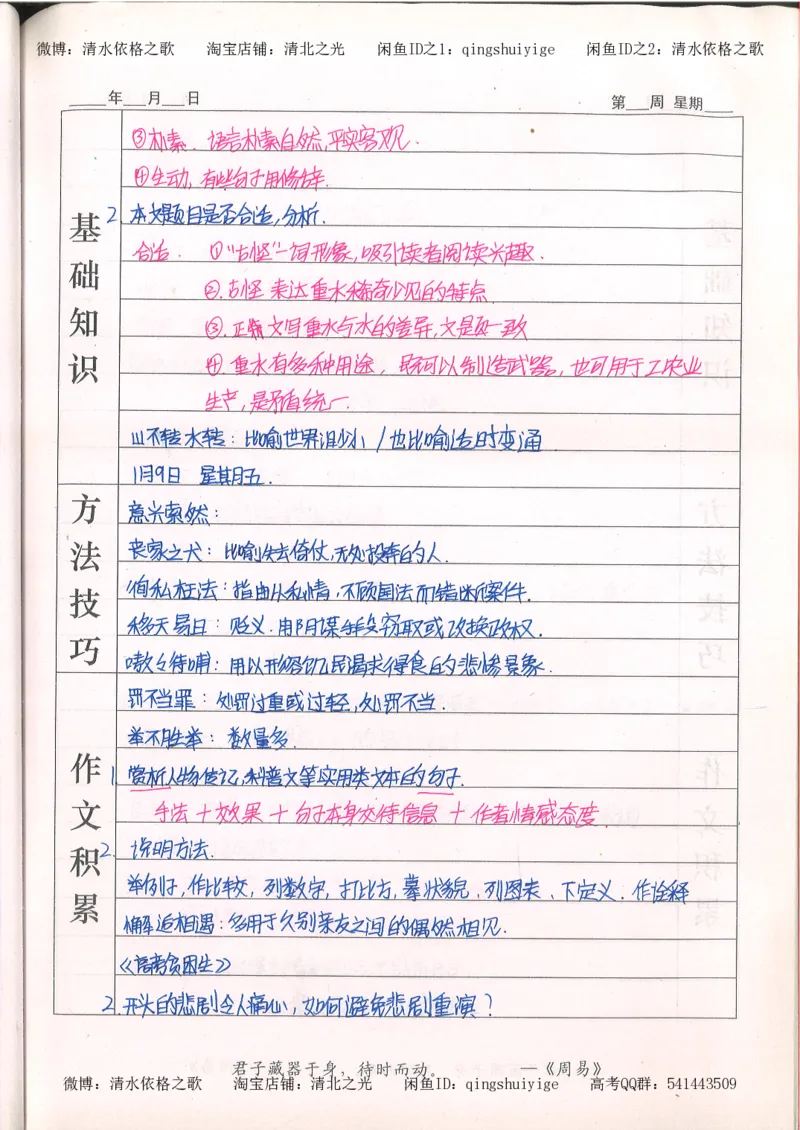 微博：清水依格之歌 淘宝店铺：清北之光 闲鱼ID之1：qingshuiyige 闲鱼ID之2：清水依格之歌
年 月 日 第 周 星期
③朴素、语言朴素自然,平实客观.
④生动, 有些句子用修辞.
2 本文题目是否合适,分析.
基础知识
合适. ①“古怪”一词形象,吸引读者阅读兴趣.
②.古怪 表达重水稀奇少见的特点
③.正 文写重水与水的差异,文是题一致
④.重水有多种用途，既可以制造武器，也可用于工农业
生产,是矛盾统一.
山不转水转：比喻世界很小/也比喻适时变通
1月9日 星期五.
方法技巧
意兴索然：
丧家之犬：比喻失去倚仗,无处投奔的人.
徇私枉法：指由从私情,不顾国法而错断案件.
移天易日：贬义.用阴谋手段窃取或改换政权.
嗷々待哺：用以形容饥民渴求得食的悲惨景象.
罚不当罪：处罚过重或过轻,处罚不当.
举不胜举：数量多.
作文积累
1.赏析人物传记,科普文等实用类文本的句子.
手法＋效果＋句子本身交待信息＋作者情感态度.
2. 说明方法.
举例子,作比较,列数字,打比方,摹状貌,列图表、下定义.作诠释
邂逅相遇：多用于久别亲友之间的偶然相见.
《高考贫困生》
2.开头的悲剧令人痛心,如何避免悲剧重演？
君子藏器于身，待时而动。 ——《周易》
微博：清水依格之歌 淘宝店铺：清北之光 闲鱼ID：qingshuiyige 高考QQ群：541443509